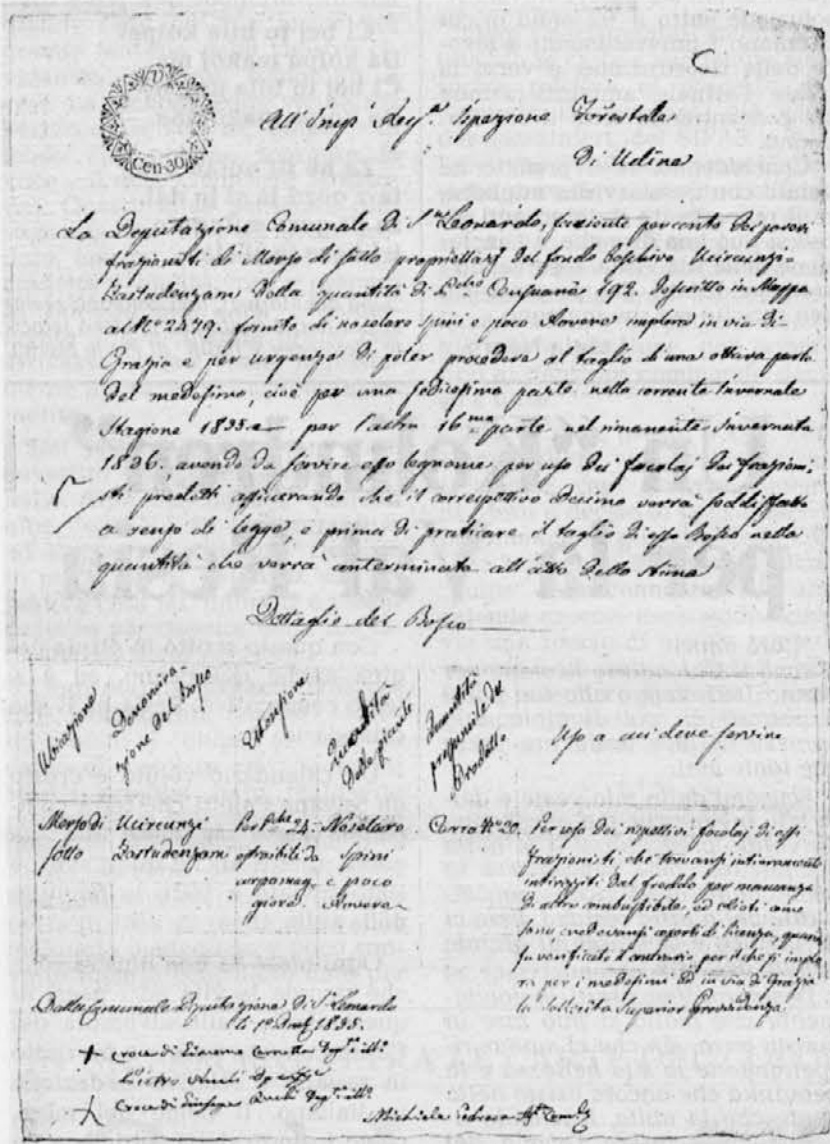 Cen 30
All' Imp. Reg.ª Ispezione Forestale
Di Udine
La Deputazione Comunale di S. Leonardo, facciente per conto dei poveri
frazionisti di Merso di sotto proprietarj del fondo boschivo Ucircunzi
Zastudenzam della quantità di Censuarie 192. descritto in Mappa
al N.º 2479. fornito di noselaro spini e poco Rovere implora in via di
Grazia e per urgenza di poter procedere al taglio di una ottava parte
del medesimo, cioè per una sedicesima parte nella corrente Invernale
Stagione 1835 e per l'altra 16.ma parte nel rimanente Invernata
1836. avendo da servire esso legname per uso dei focolaj dei frazioni:
sti predetti assicurando che il correspettivo Decimo verrà soddisfatto
a senso di legge, e prima di praticare il taglio di esso Bosco nella
quantità che verrà anterminata all'atto della stima
Dettaglio del Bosco
Ubicazione
Denomina-
zione del Bosco
Estensione
Qualità
delle piante
Quantità
del
Prodotto
Uso a cui deve servire
Merso di
sotto
Ucircunzi
Zastudenzam
Per P.che 24.
estraibile da
Noselaro
Spini
e poco
Rovere
Carra N.º 20.
Per uso dei rispettivi focolaj di essi
frazionisti che trovansi intieramente
intirizziti dal freddo per mancanza
di altro combustibile, ed
sono credevansi aperti di licenza, quando
fu verificato il contrario per il che si implo
ra per i medesimi ed in via di Grazia
la sollecita Superior Provvidenza
Dalla Comunale Deputazione di S. Leonardo
li 1835.
+ Croce di
Pietro
+ Croce di
Michiele